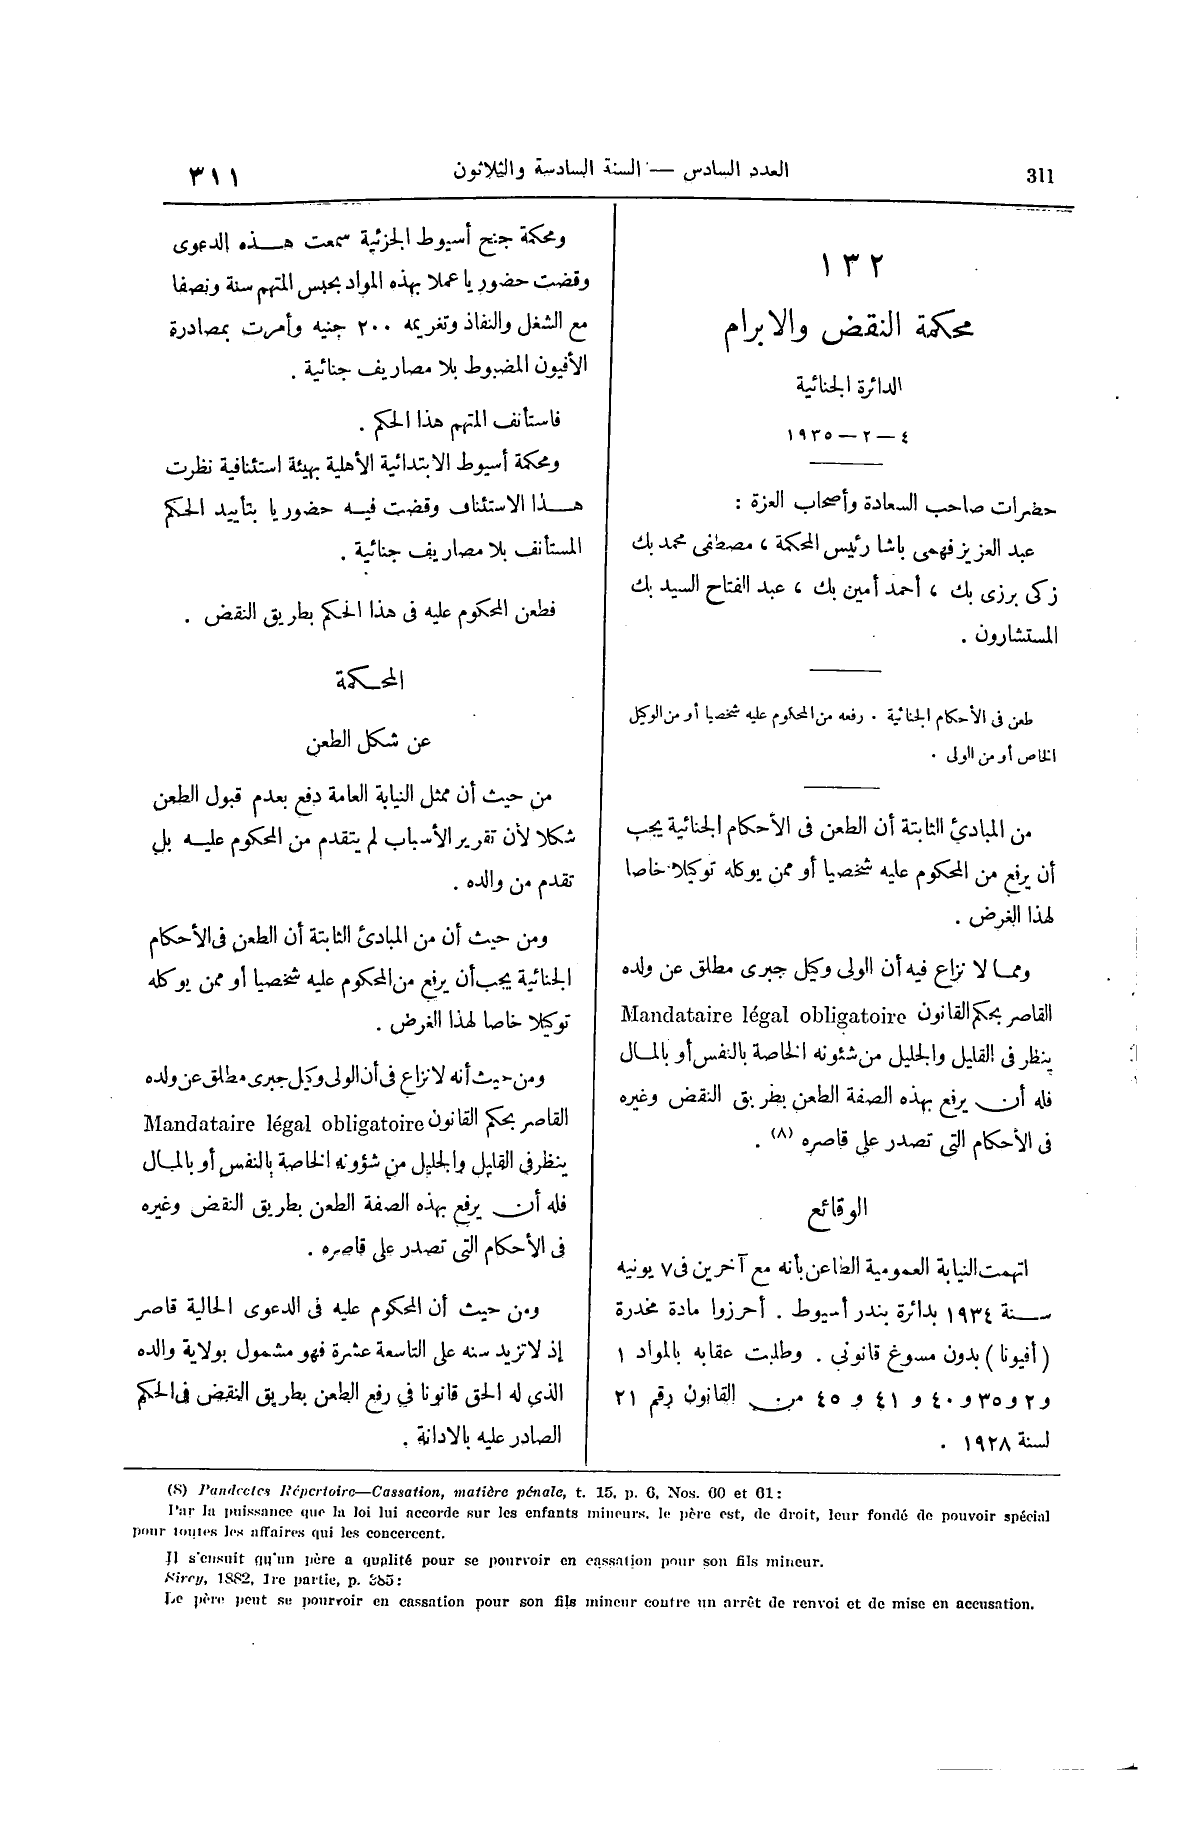 311
العدد السادس — السنة السادسة والثلاثون
٣١١
١٣٢
محكمة النقض والابرام
الدائرة الجنائية
٤ — ٢ — ١٩٣٥
حضرات صاحب السعادة وأصحاب العزة :
عبد العزيز فهمى باشا رئيس المحكمة ، مصطفى محمد بك
زكى برزى بك ، أحمد أمين بك ، عبد الفتاح السيد بك
المستشارون .
طعن فى الأحكام الجنائية . رفعه من المحكوم عليه شخصيا أو من الوكيل
الخاص أو من الولى .
من المبادئ الثابتة أن الطعن فى الأحكام الجنائية يجب
أن يرفع من المحكوم عليه شخصيا أو ممن يوكله توكيلا خاصا
لهذا الغرض .
ومما لا نزاع فيه أن الولى وكيل جبرى مطلق عن ولده
القاصر بحكم القانون Mandataire légal obligatoire
ينظر فى القليل والجليل من شئونه الخاصة بالنفس أو بالمال
فله أن يرفع بهذه الصفة الطعن بطريق النقض وغيره
فى الأحكام التى تصدر على قاصره (٨) .
الوقائع
اتهمت النيابة العمومية الطاعن بأنه مع آخرين فى ٧ يونيه
سنة ١٩٣٤ بدائرة بندر أسيوط . أحرزوا مادة مخدرة
( أفيونا ) بدون مسوغ قانونى . وطلبت عقابه بالمواد ١
و ٢ و ٣٥ و ٤٠ و ٤١ و ٤٥ من القانون رقم ٢١
لسنة ١٩٢٨ .
ومحكمة جنح أسيوط الجزئية سمعت هذه الدعوى
وقضت حضوريا عملا بهذه المواد بحبس المتهم سنة ونصفا
مع الشغل والنفاذ وتغريمه ٢٠٠ جنيه وأمرت بمصادرة
الأفيون المضبوط بلا مصاريف جنائية .
فاستأنف المتهم هذا الحكم .
ومحكمة أسيوط الابتدائية الأهلية بهيئة استئنافية نظرت
هذا الاستئناف وقضت فيه حضوريا بتأييد الحكم
المستأنف بلا مصاريف جنائية .
فطعن المحكوم عليه فى هذا الحكم بطريق النقض .
المحكمة
عن شكل الطعن
من حيث أن ممثل النيابة العامة دفع بعدم قبول الطعن
شكلا لأن تقرير الأسباب لم يتقدم من المحكوم عليه بل
تقدم من والده .
ومن حيث أن من المبادئ الثابتة أن الطعن فى الأحكام
الجنائية يجب أن يرفع من المحكوم عليه شخصيا أو ممن يوكله
توكيلا خاصا لهذا الغرض .
ومن حيث أنه لا نزاع فى أن الولى وكيل جبرى مطلق عن ولده
القاصر بحكم القانون Mandataire légal obligatoire
ينظر فى القليل والجليل من شؤونه الخاصة بالنفس أو بالمال
فله أن يرفع بهذه الصفة الطعن بطريق النقض وغيره
فى الأحكام التى تصدر على قاصره .
ومن حيث أن المحكوم عليه فى الدعوى الحالية قاصر
إذ لا تزيد سنه على التاسعة عشرة فهو مشمول بولاية والده
الذي له الحق قانونا في رفع الطعن بطريق النقض فى الحكم
الصادر عليه بالادانة .
(8) Pandectes Répertoire—Cassation, matière pénale, t. 15, p. 6, Nos. 60 et 61:
Par la puissance que la loi lui accorde sur les enfants mineurs, le père est, de droit, leur fondé de pouvoir spécial
pour toutes les affaires qui les concercent.
Il s'ensuit qu'un père a qualité pour se pourvoir en cassation pour son fils mineur.
Sirey, 1882, 1re partie, p. 385:
Le père peut se pourvoir en cassation pour son fils mineur contre un arrêt de renvoi et de mise en accusation.